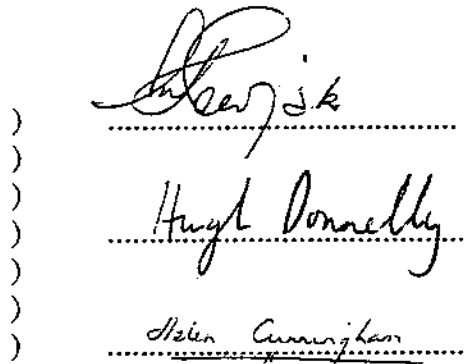 )
)
)
) Hugh Donnelly
)
)
) Helen Cunningham